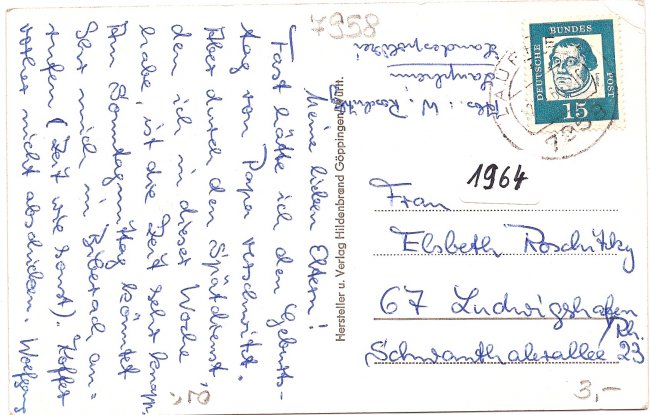 Meine lieben Eltern!
Fast hätte ich den Geburts-
tag von Papa verschwitzt.
Aber durch den Spätdienst,
den ich in dieser Woche
habe, ist die Zeit sehr knapp.
Am Sonntagmittag könntet
Ihr mich in Biberach an-
rufen (Zeit wie sonst). Karte
vorher nicht abschicken. Wolfgang
Hersteller u. Verlag Hildenbrand Göppingen/Württ.
7958
Abs.: W. Roschitzky
Laupheim
Landespolizei
DEUTSCHE BUNDESPOST
15
LAUPHEIM
7958
1964
Frau
Elsbeth Roschitzky
67 Ludwigshafen
/Rh.
Schwanthalerallee 23
3,-